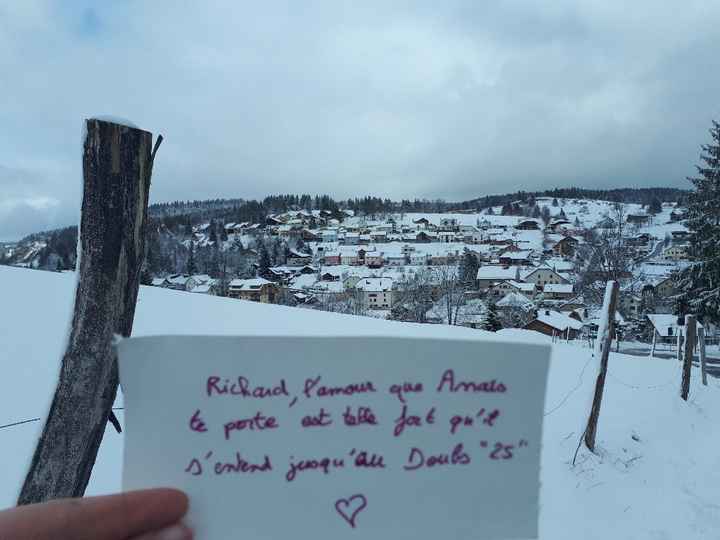 Richard, l'amour que Anaïs
te porte est telle fort qu'il
s'entend jusqu'au Doubs "25"
♡